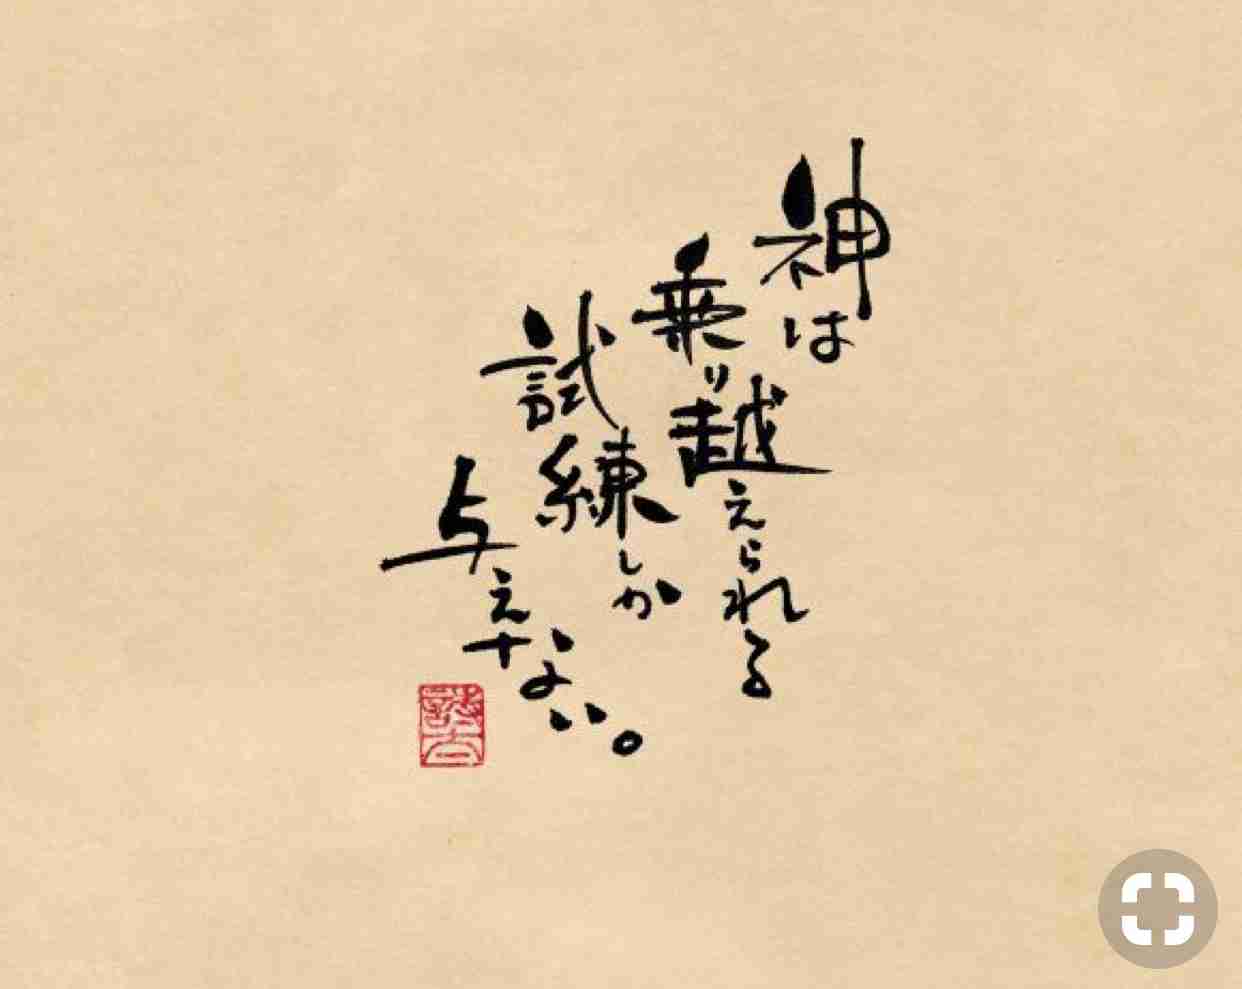 神は
乗り越えられる
試練しか
与えない。